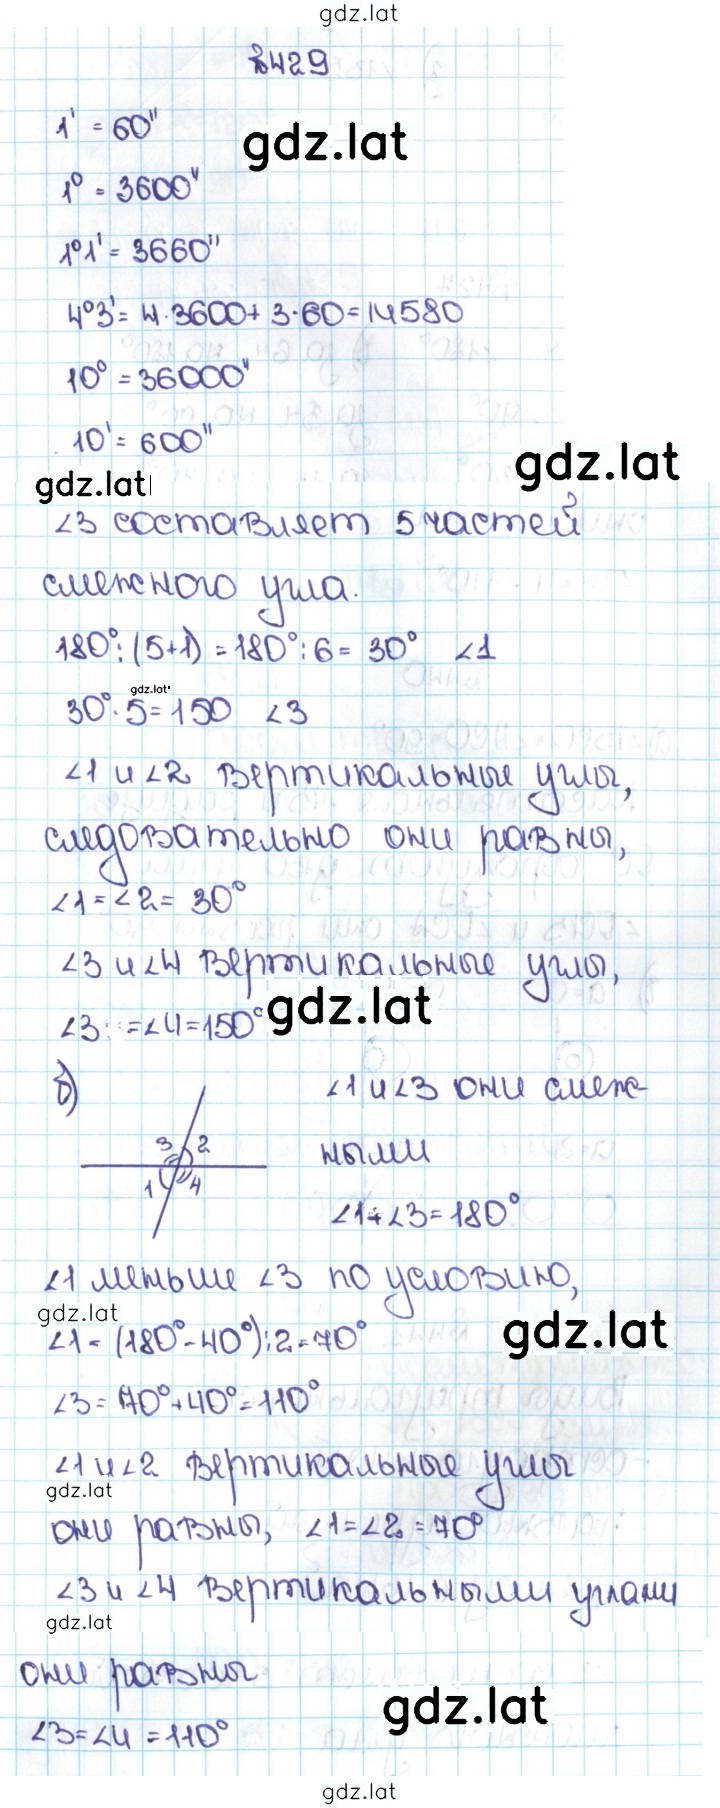 gdz.lat
№429
1' = 60''
gdz.lat
1° = 3600''
1°1' = 3660''
4°3' = 4·3600 + 3·60 = 14580
10° = 36000''
10' = 600''
gdz.lat
gdz.lat
∠3 составляет 5 частей
смежного угла.
180° : (5+1) = 180° : 6 = 30° ∠1
gdz.lat
30° · 5 = 150 ∠3
∠1 и ∠2 вертикальные углы,
следовательно они равны,
∠1 = ∠2 = 30°
∠3 и ∠4 вертикальные углы,
∠3 = ∠4 = 150°
gdz.lat
б)
∠1 и ∠3 они смеж-
ными
3 2
1 4
∠1 + ∠3 = 180°
∠1 меньше ∠3 по условию,
gdz.lat
∠1 = (180° - 40°) : 2 = 70°
gdz.lat
∠3 = 70° + 40° = 110°
∠1 и ∠2 вертикальные углы
gdz.lat
они равны, ∠1 = ∠2 = 70°
∠3 и ∠4 вертикальными углами
gdz.lat
они равны
gdz.lat
∠3 = ∠4 = 110°
gdz.lat